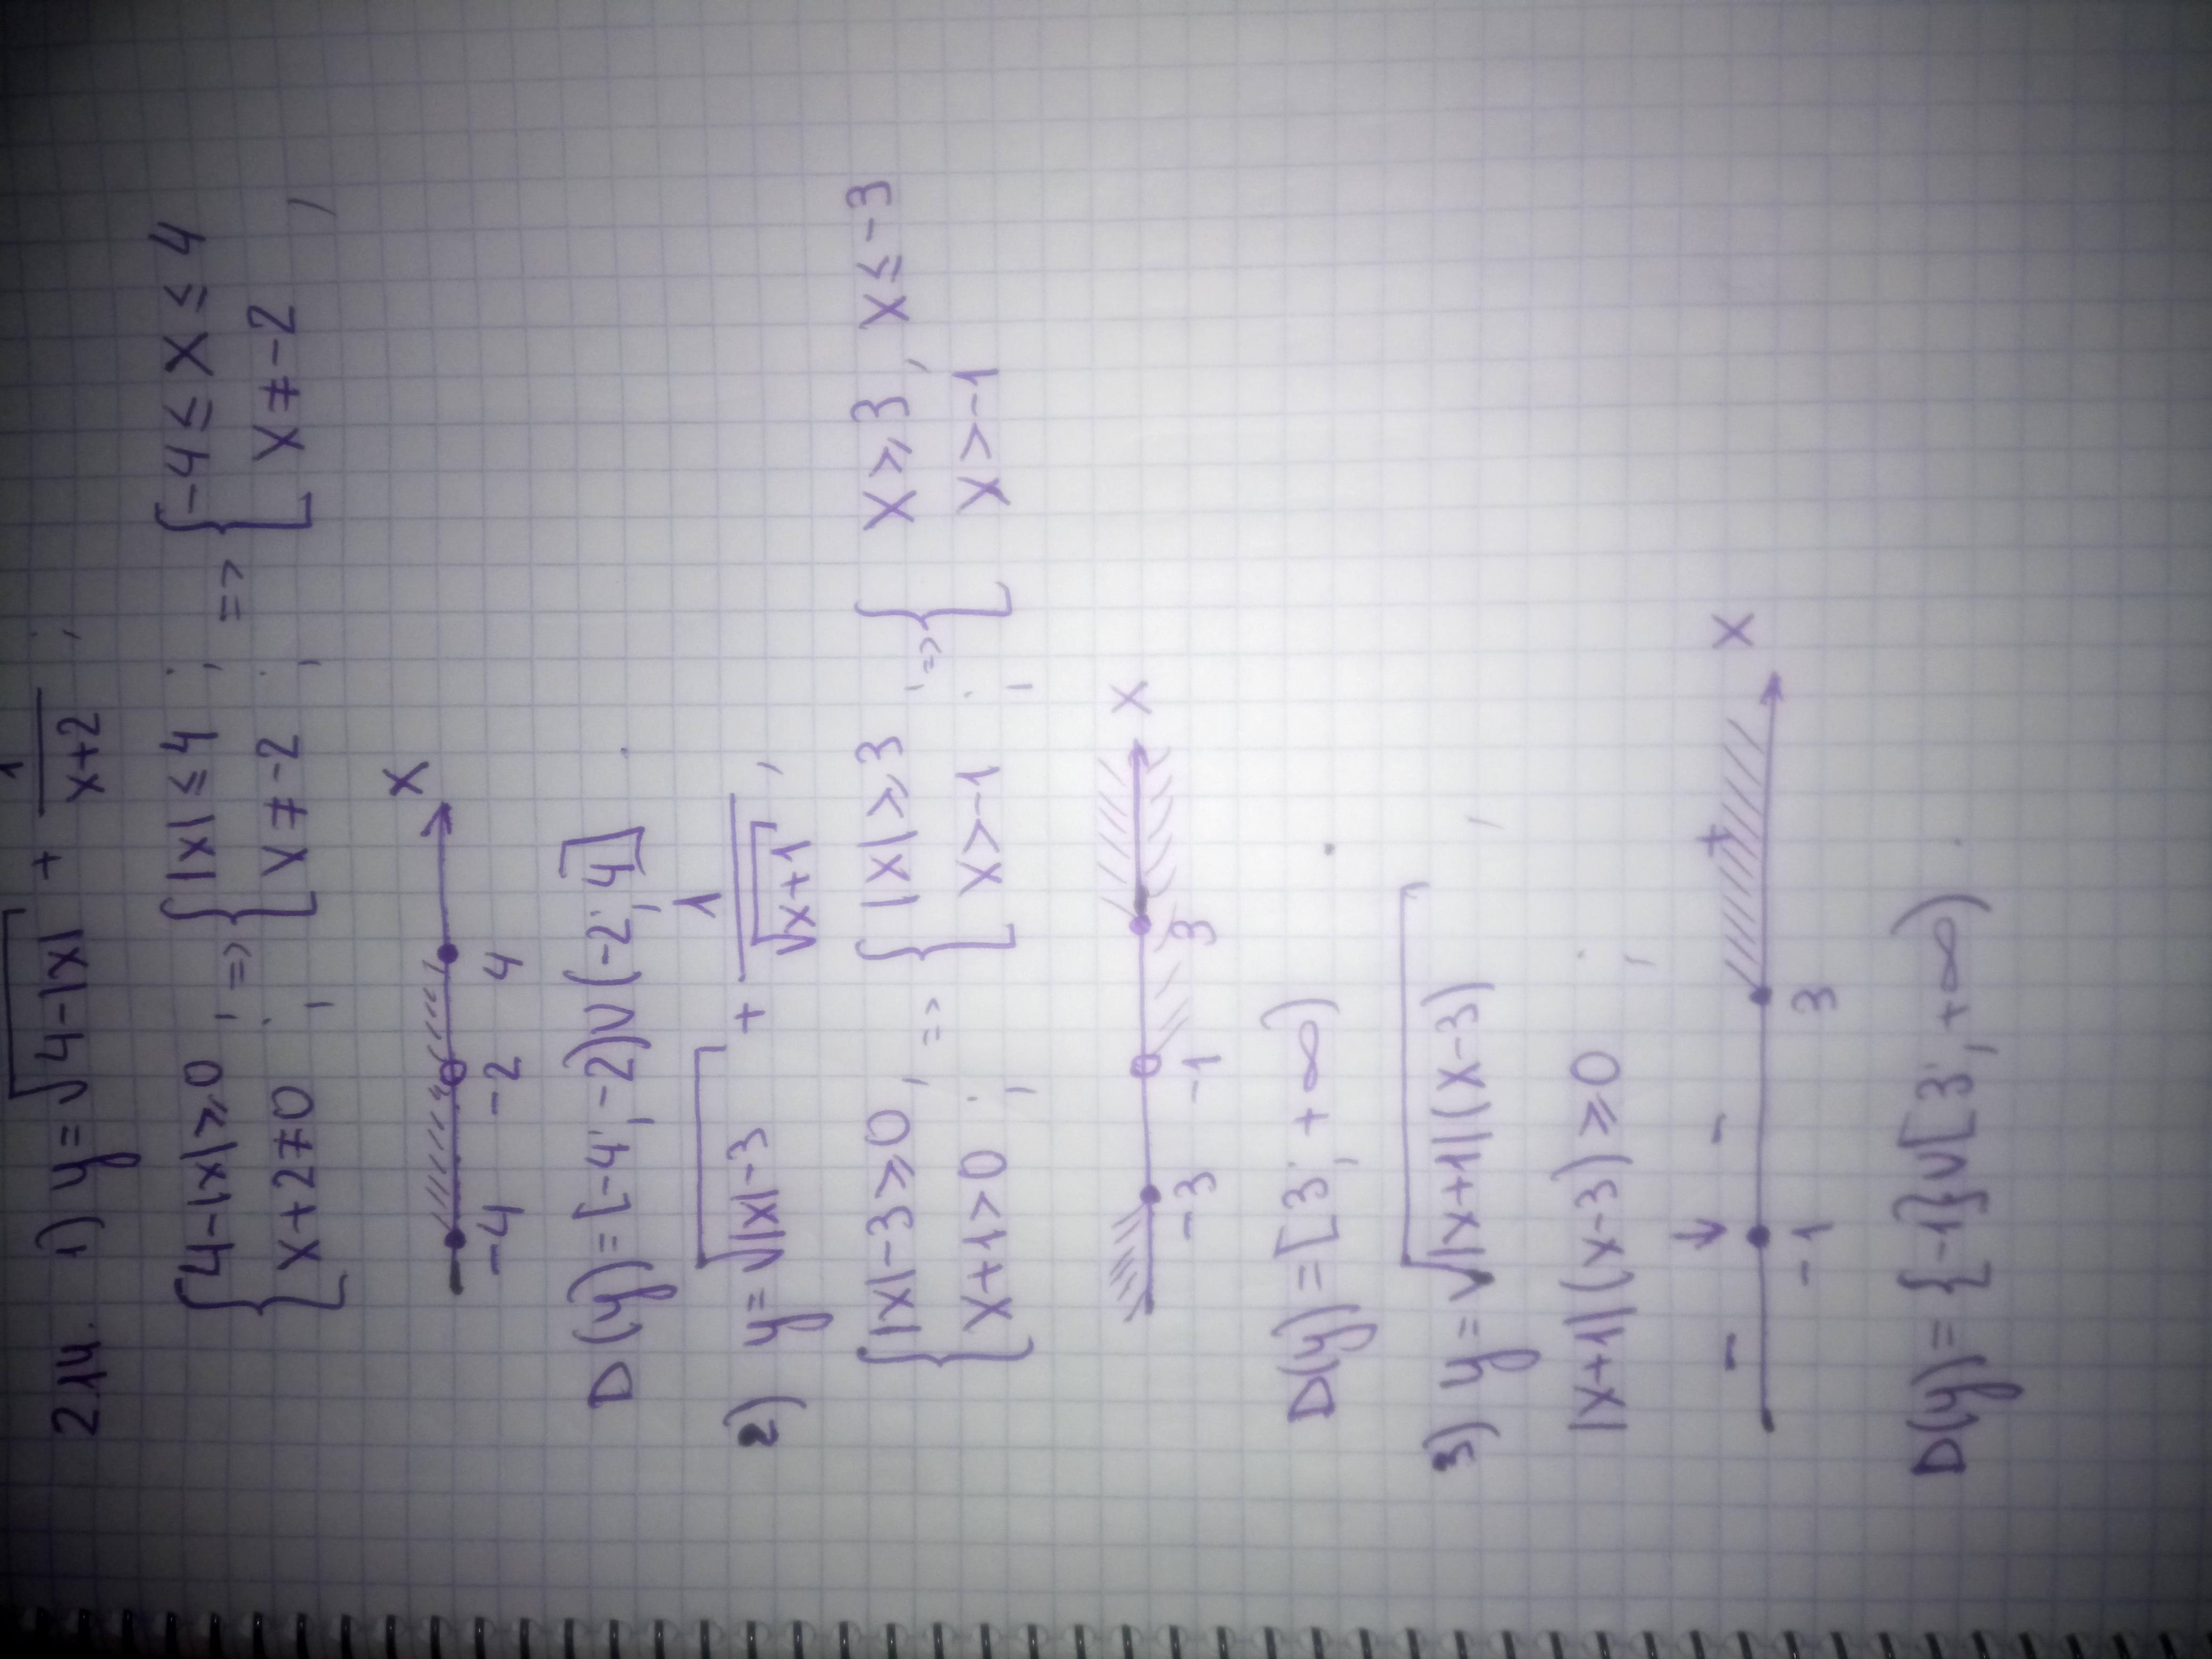 2.14. 1) y = √(4-|x|) + 1/(x+2);
{4-|x| ≥ 0; x+2 ≠ 0; => {|x| ≤ 4; x ≠ -2; => {-4 ≤ x ≤ 4 x ≠ -2,
-4 -2 4 x
D(y) = [-4; -2)∪(-2; 4].
2) y = √(|x|-3) + 1/√(x+1),
{|x|-3 ≥ 0, x+1 > 0; => {|x| ≥ 3, x > -1; => {x ≥ 3, x ≤ -3 x > -1
-3 -1 3 x
D(y) = [3; +∞).
3) y = √(|x+1|(x-3)),
|x+1|(x-3) ≥ 0;
- ↓ - + x
-1 3
D(y) = {-1}∪[3; +∞).